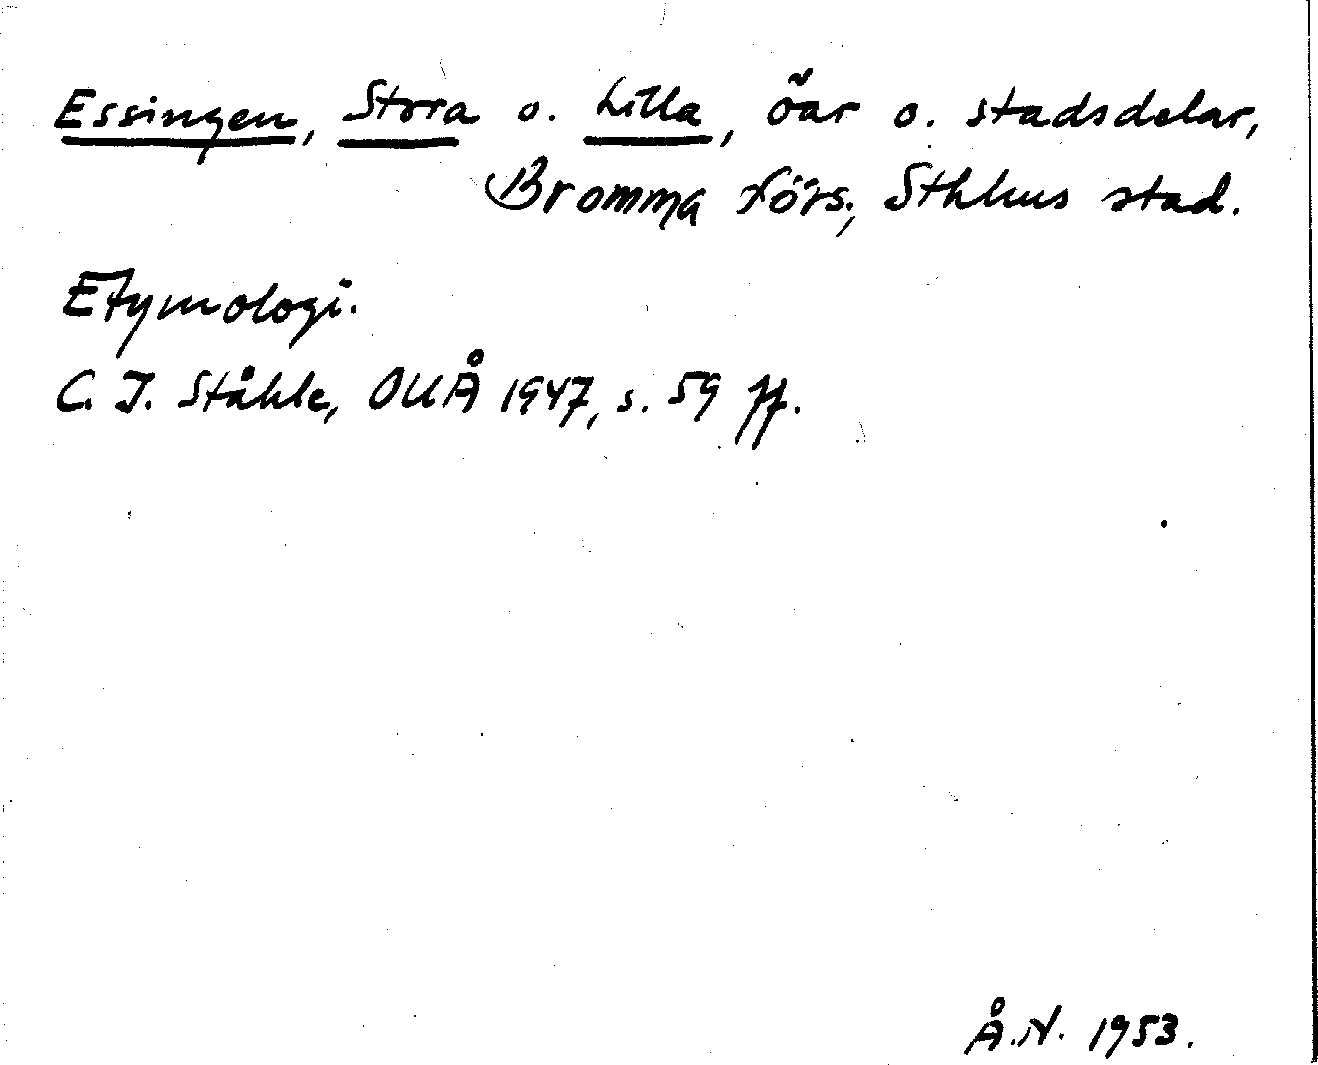 Essingen, Stora o. Lilla, öar o. stadsdelar,
Bromma förs., Sthlms stad.
Etymologi.
C. I. Ståhle, OUÅ 1947, s. 59 ff.
Å.N. 1953.